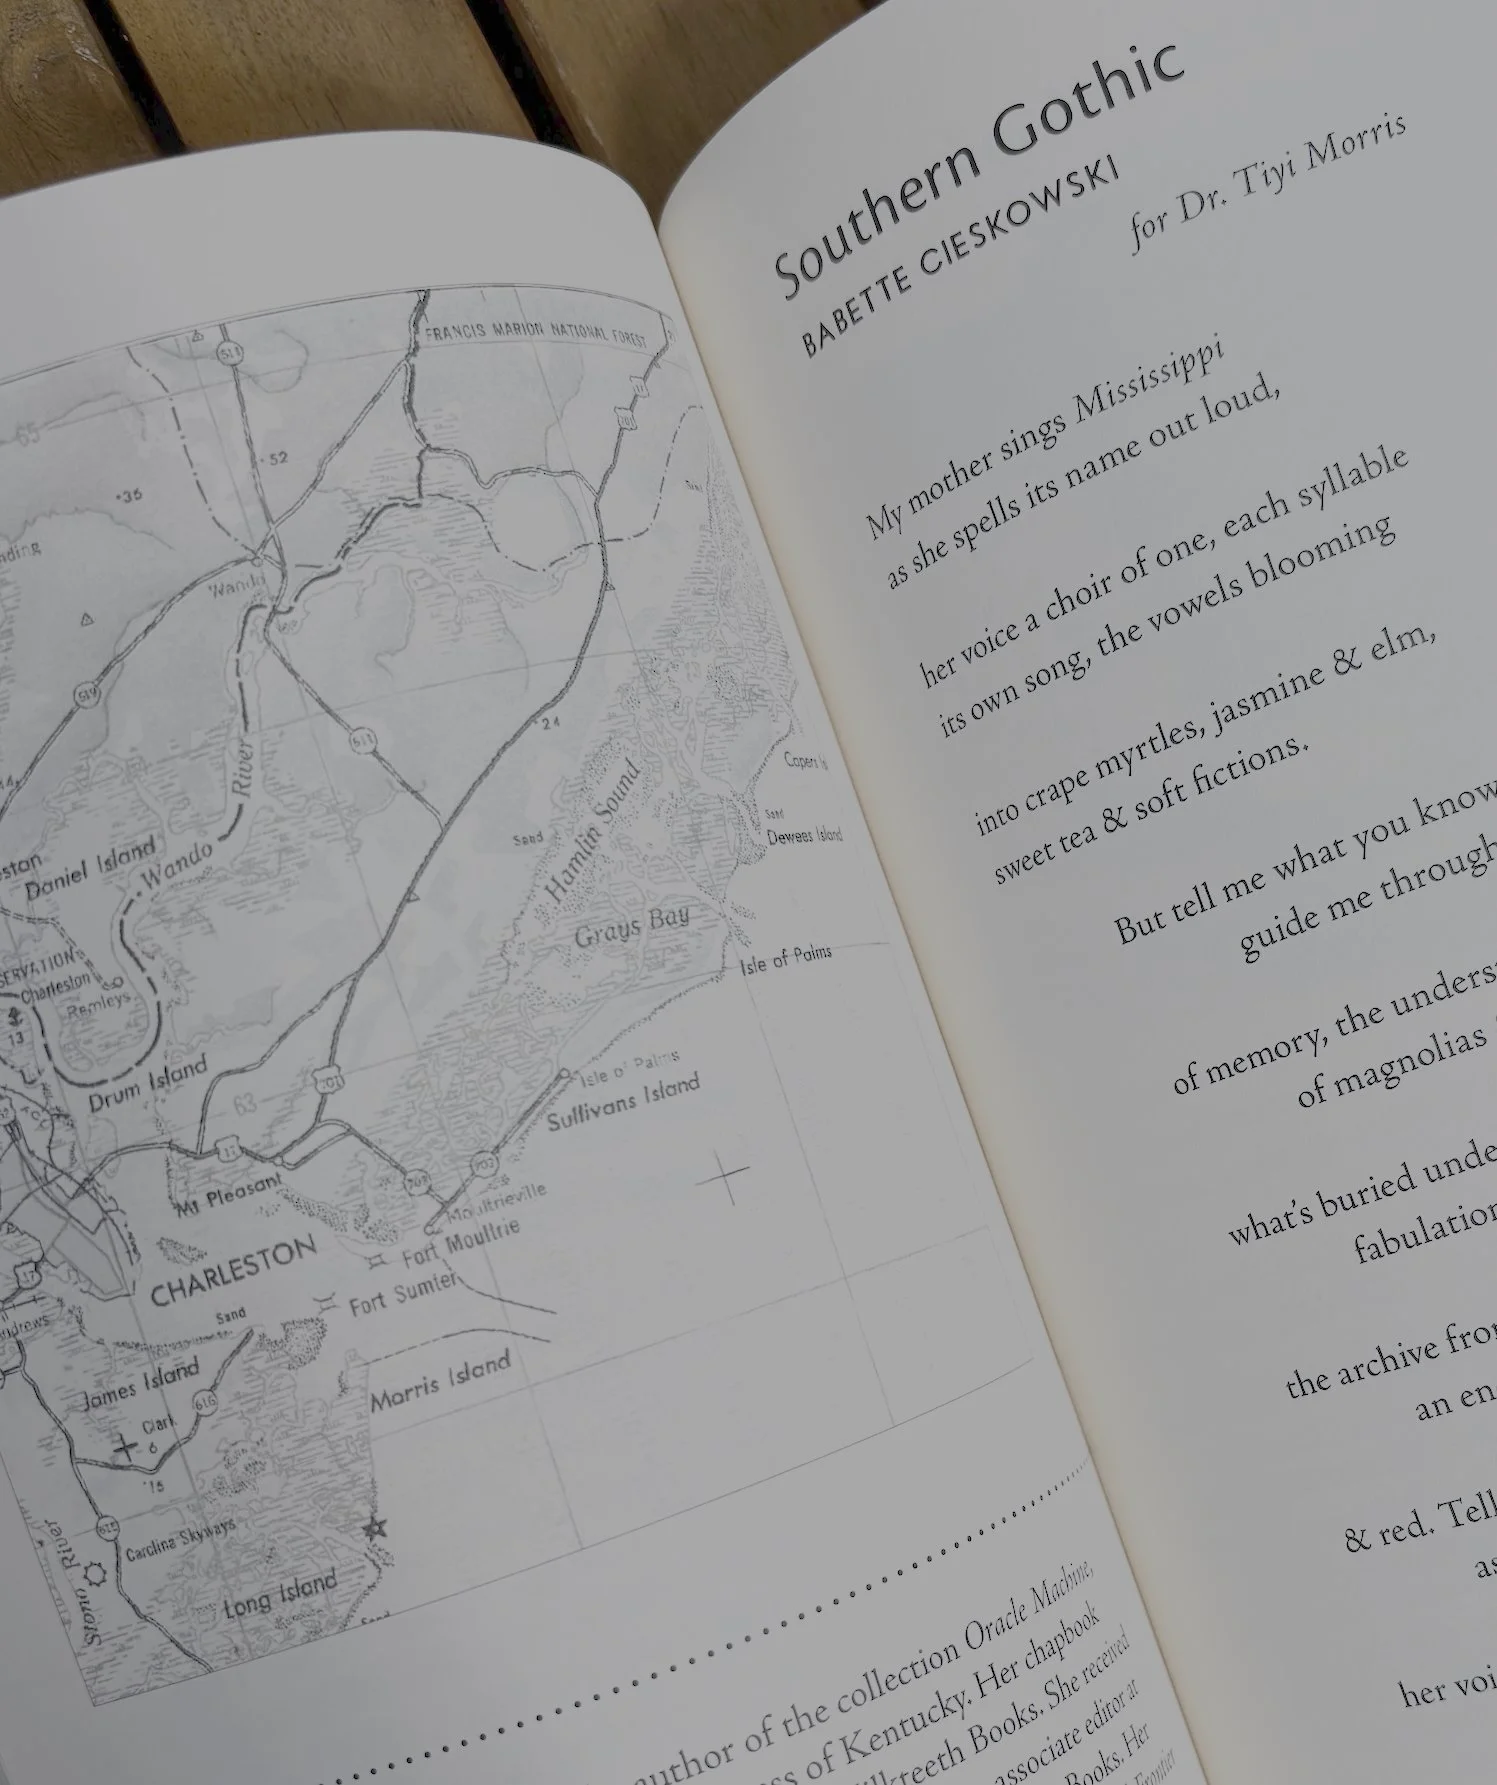 FRANCIS MARION NATIONAL FOREST
511
52
65
35
Wando
519
River
511
24
Hamlin Sound
Capers
Sand
Sand
Dewees Island
Daniel Island
Wando
Grays Bay
Isle of Palms
Charleston
Remleys
13
Drum Island
63
701
Isle of Palms
Sullivans Island
17
703
703
Mt Pleasant
Moultrieville
Fort Moultrie
CHARLESTON
Fort Sumter
Sand
17
Morris Island
James Island
616
Clark
6
15
Carolina Skyways
Stono River
Long Island
Sand
author of the collection Oracle Machine,
of Kentucky. Her chapbook
Books. She received
associate editor at
Books. Her
Frontier
Southern Gothic
BABETTE CIESKOWSKI
for Dr. Tiyi Morris
My mother sings Mississippi
as she spells its name out loud,
her voice a choir of one, each syllable
its own song, the vowels blooming
into crape myrtles, jasmine & elm,
sweet tea & soft fictions.
But tell me what you know
guide me through
of memory, the unders
of magnolias
what's buried unde
fabulation
the archive fro
an en
& red. Tell
as
her voi